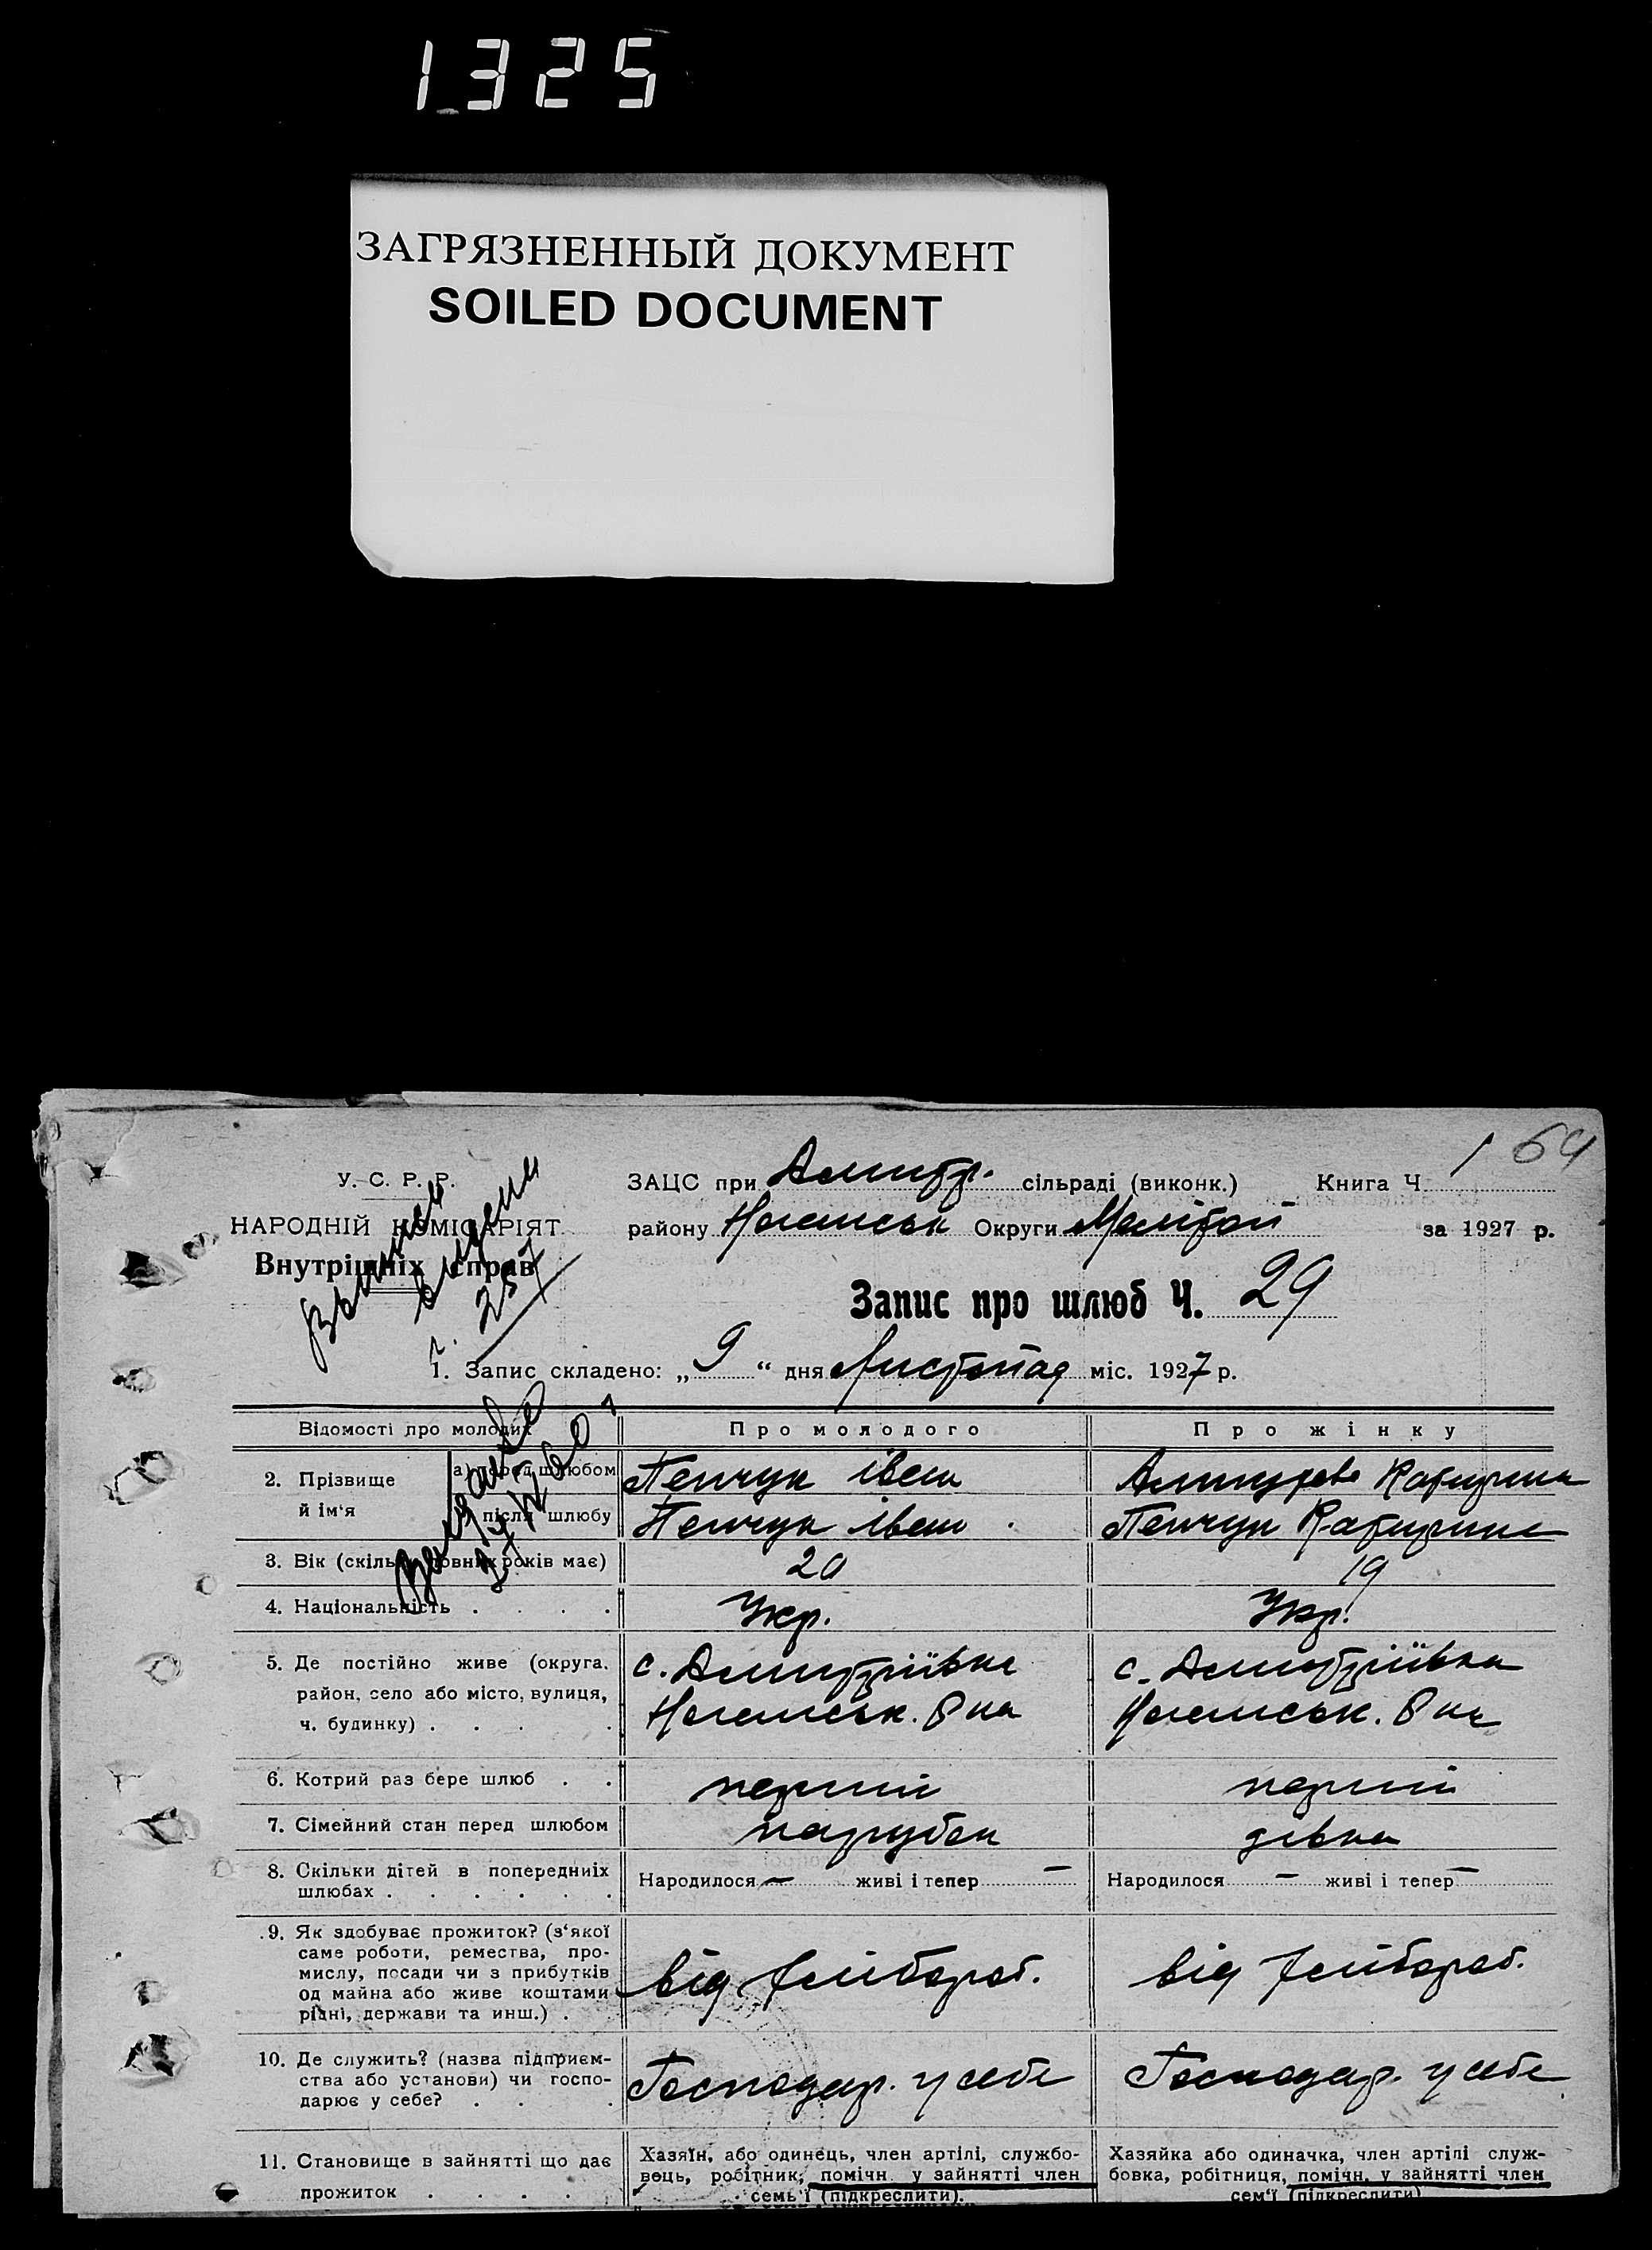 1325
ЗАГРЯЗНЕННЫЙ ДОКУМЕНТ
SOILED DOCUMENT
1 64
У. С. Р. Р.
НАРОДНІЙ КОМІСАРІЯТ
Внутрішніх справ
ЗАЦС при Дмитр. сільраді (виконк.) Книга Ч.
району Ногайськ Округи Мелітоп за 1927 р.
Запис про шлюб Ч. 29
1. Запис складено: „ 9 “ дня Листопад міс. 1927 р.
Відомості про молодих Про молодого Про жінку
2. Прізвище й ім'я
а) перед шлюбом Пенчук Іван Катерина
після шлюбу Пенчук Іван. Пенчук Катерина
3. Вік (скільки повних років має) 20 19
4. Національність . . . . Укр. Укр.
5. Де постійно живе (округа, район, село або місто, вулиця, ч. будинку) . . .
с. Дмитріївка с. Дмитріївка
Ногайськ. Р на Ногайськ. Р на
6. Котрий раз бере шлюб . . перший перший
7. Сімейний стан перед шлюбом парубок дівка
8. Скільки дітей в попередніх шлюбах . . . . . .
Народилося — живі і тепер — Народилося — живі і тепер —
9. Як здобуває прожиток? (з'якої
саме роботи, ремества, про-
мислу, посади чи з прибутків
од майна або живе коштами
рідні, держави та инш.) .
від хлібороб. від хлібороб.
10. Де служить? (назва підприєм-
ства або установи) чи госпо-
дарює у себе? . . .
Господар. у себе Господар. у себе
11. Становище в зайнятті що дає
прожиток . . . .
Хазяїн, або одинець, член артілі, службо-
вець, робітник, помічн. у зайнятті член
семь'ї (підкреслити).
Хазяйка або одиначка, член артілі служ-
бовка, робітниця, помічн. у зайнятті член
сем'ї (підкреслити)